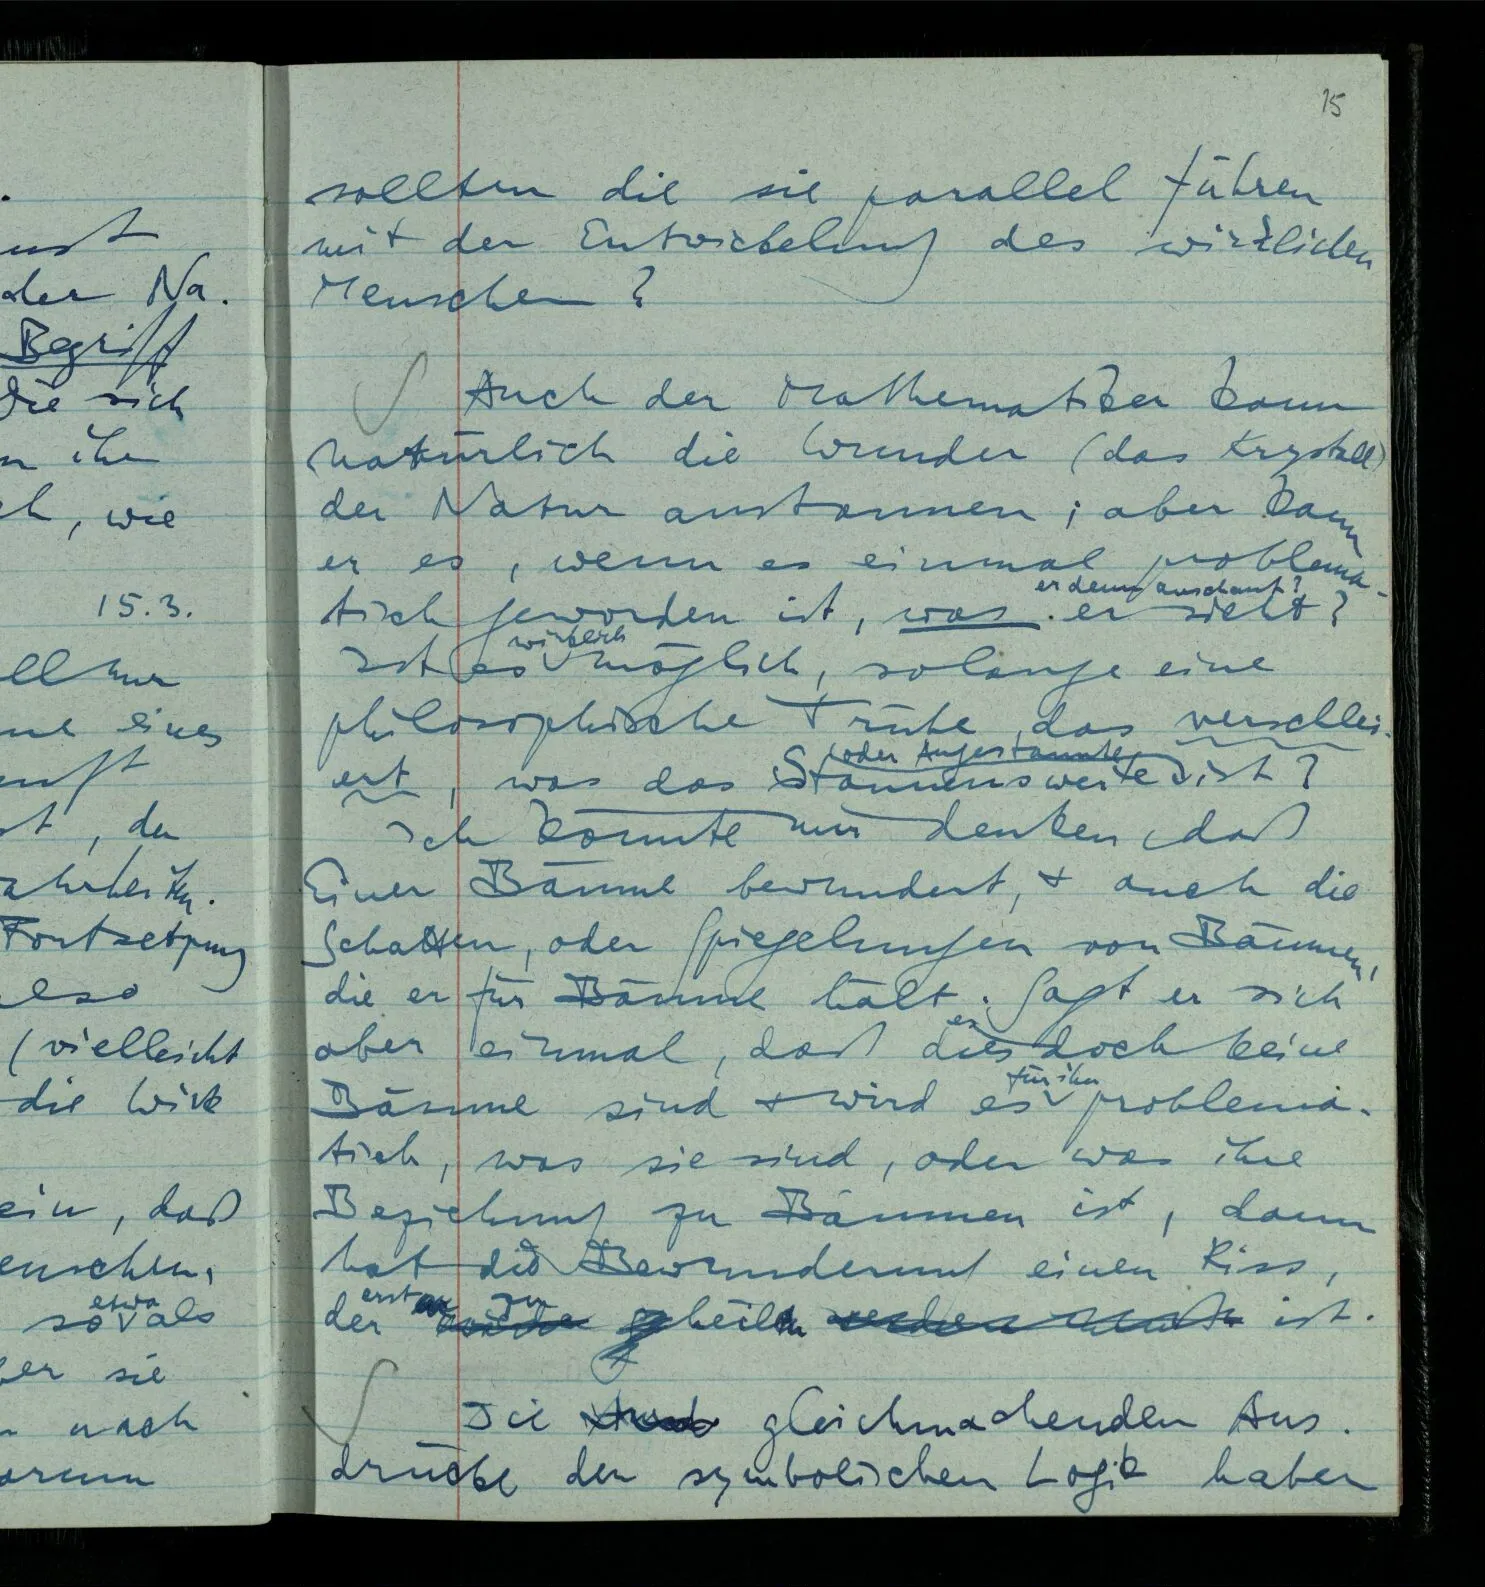 .
der Na-
Begriff
die sich
n ihr
, wie
15.3.
ll nur
eines
, der
Fortsetzung
also
(vielleicht
die wirk
ein, daß
enschen,
so etwa als
er sie
nach
15
sollten die sie parallel führen
mit der Entwickelung des wirklichen
Menschen?
Auch der Mathematiker kann
natürlich die Wunder (das Krystall)
der Natur anstaunen; aber kann
er es, wenn es einmal problema-
er denn anschaut?
tisch geworden ist, was er sieht?
wirklich
Ist es möglich, solange eine
philosophische Trübe das verschlei-
oder Angestaunte
ert, was das Staunenswerte ist?
Ich könnte mir denken, daß
Einer Bäume bewundert, & auch die
Schatten, oder Spiegelungen von Bäumen,
die er für Bäume hält. Sagt er sich
es
aber einmal, daß dies doch keine
für ihn
Bäume sind & wird es problema-
tisch, was sie sind, oder was ihre
Beziehung zu Bäumen ist, dann
hat die Bewunderung einen Riss,
erst zu
der heilen ist.
Die gleichmachenden Aus-
drücke der symbolischen Logik haben